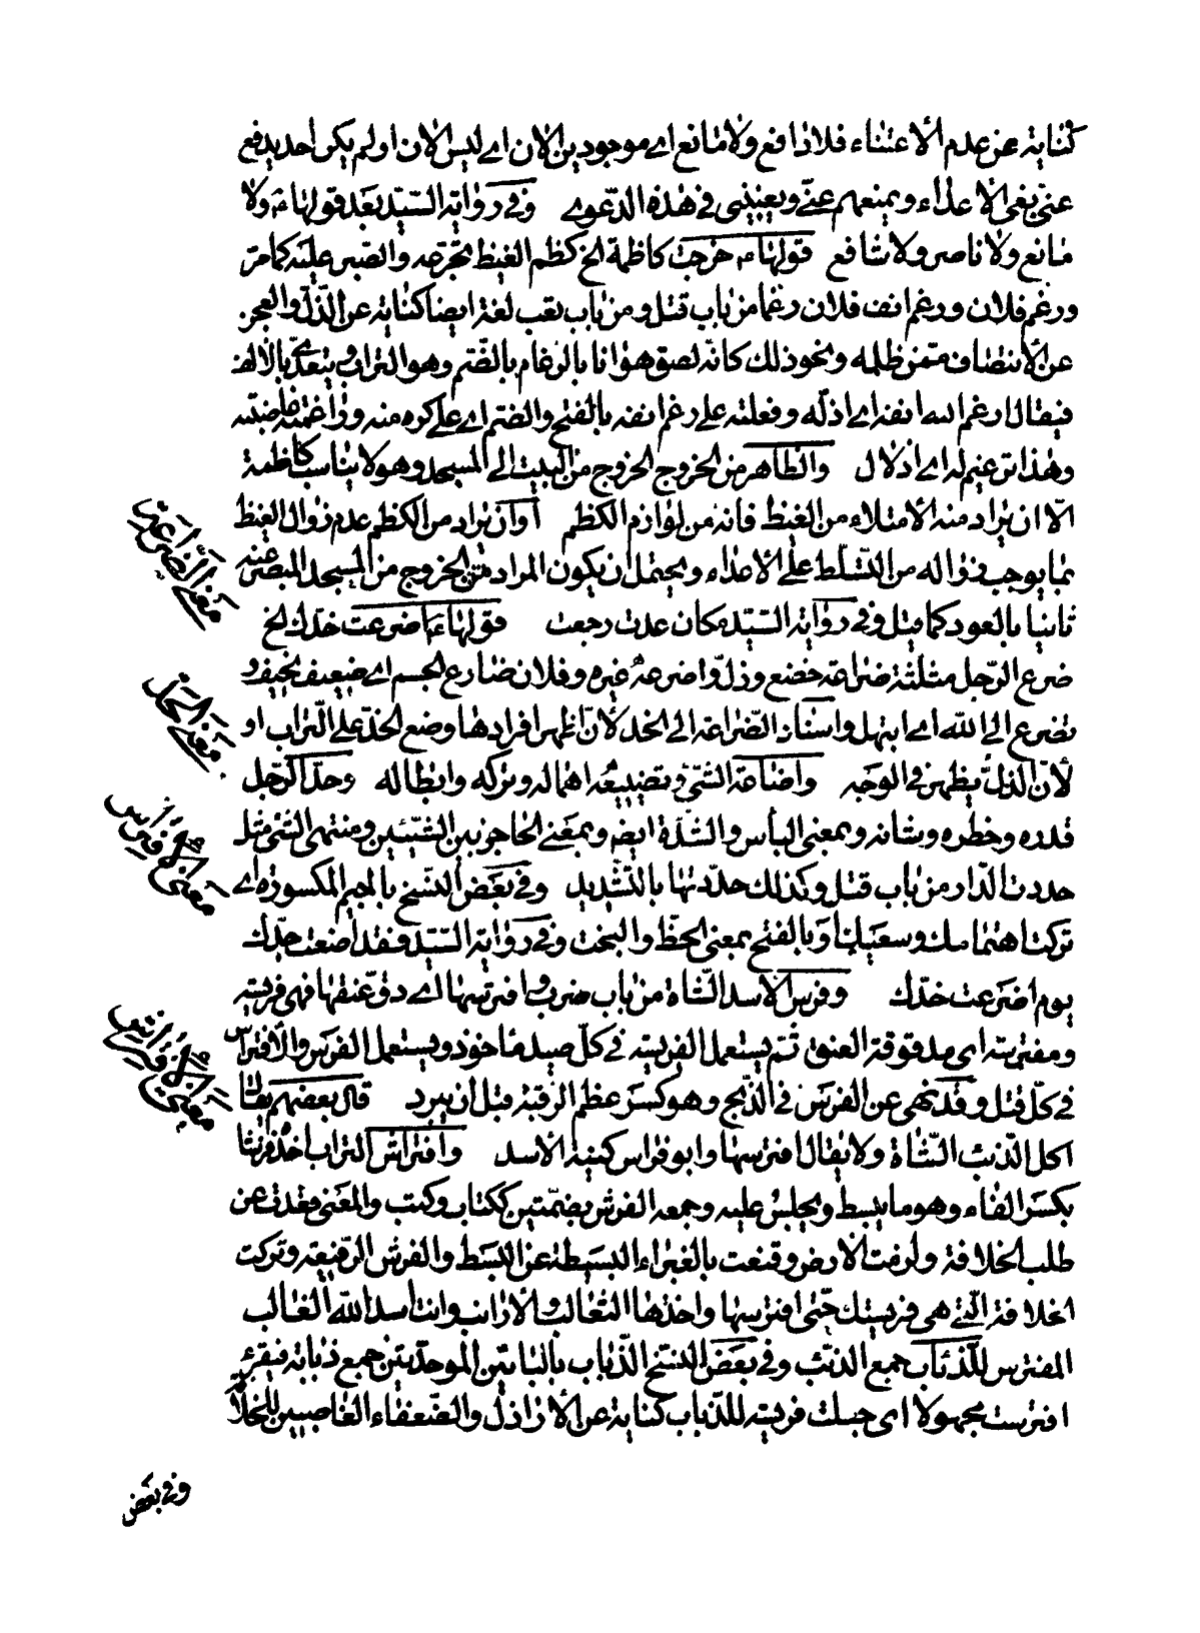 كناية عن عدم الاعتناء فلا دافع ولا مانع اى موجودين الان اى ليس الان او لم يكن احد يدفع
عنى بغى الاعداء ويمنعهم عنى ويعيننى فى هذه الدعوى وفى رواية السيد بعد قولها ع ولا
مانع ولا ناصر ولا شافع قولها ع خرجت كاظمة الخ كظم الغيظ تجرعه والصبر عليه كما مر
ورغم فلان ورغم انف فلان رغما من باب قتل ومن باب تعب لغة ايضا كناية عن الذل والعجز
عن الانتصاف ممن ظلمه ونحو ذلك كانه لصق هوانا بالرغام بالضم وهو التراب ويتعدى بالالف
فيقال ارغم الله انفه اى اذله وفعلته على رغم انفه بالفتح والضم اى على كره منه وراغمته غاضبته
وهذا ترغيم له اى اذلال والظاهر من الخروج الخروج من البيت الى المسجد وهو لا يناسب كاظمة
الا ان يراد منه الامتلاء من الغيظ فانه من لوازم الكظم او ان يراد من الكظم عدم زوال الغيظ
بما يوجب زواله من التسلط على الاعداء ويحتمل ان يكون المراد من الخروج من المسجد المعبر عنه
ثانيا بالعود كما قيل وفى رواية السيد مكان عدت رجعت قولها ع اضرعت خدك الخ
ضرع الرجل مثلثة ضراعة خضع وذل واضرعه غيره وفلان ضارع الجسم اى ضعيف نحيف و
تضرع الى الله اى ابتهل واسناد الضراعة الى الخد لان اظهر افرادها وضع الخد على التراب او
لان الذل يظهر فى الوجه واضاعة الشئ وتضييعه اهماله وتركه وابطاله وحد الرجل
قدره وخطره وشانه وبمعنى الباس والشدة ايضا وبمعنى الحاجز بين الشيئين ومنتهى الشئ مثل
حددت الدار من باب قتل وكذلك حددتها بالتشديد وفى بعض النسخ بالجيم المكسورة اى
تركت اهتمامك وسعيك وبالفتح بمعنى الحظ والبخت وفى رواية السيد فقد اضعت جدك
يوم اضرعت خدك وفرس الاسد الشاة من باب ضرب وافترسها اى دق عنقها فهى فريسته
ومفترسته اى مدقوقة العنق ثم يستعمل الفريسة فى كل صيد ماخوذ ويستعمل الفرس والافتراس
فى كل قتل وقد نهى عن الفرس فى الذبح وهو كسر عظم الرقبة قبل ان يبرد قال بعضهم يقال
اكل الذئب الشاة ولا يقال افترسها وابو فراس كنية الاسد وافتراش التراب اخذه فراشا
بكسر الفاء وهو ما يبسط ويجلس عليه وجمعه الفرش بضمتين ككتاب وكتب والمعنى فقدت عن
طلب الخلافة ولزمت الارض وقنعت بالغبراء البسيطة عن البسط والفرش الرفيعة وتركت
الخلافة التى هى فريستك حتى افترسها واخذها الثعالب والارانب وانت اسد الله الغالب
المفترس للذئاب جمع الذئب وفى بعض النسخ الذباب بالبائين الموحدتين جمع ذبابة فيقرئ
افترست مجهولا اى جعلت فريسة للذباب كناية عن الاراذل والضعفاء الغاصبين للخلا
معنى الضراعة
معنى الحد
معنى فرس
معنى افتراش
وفى بعض